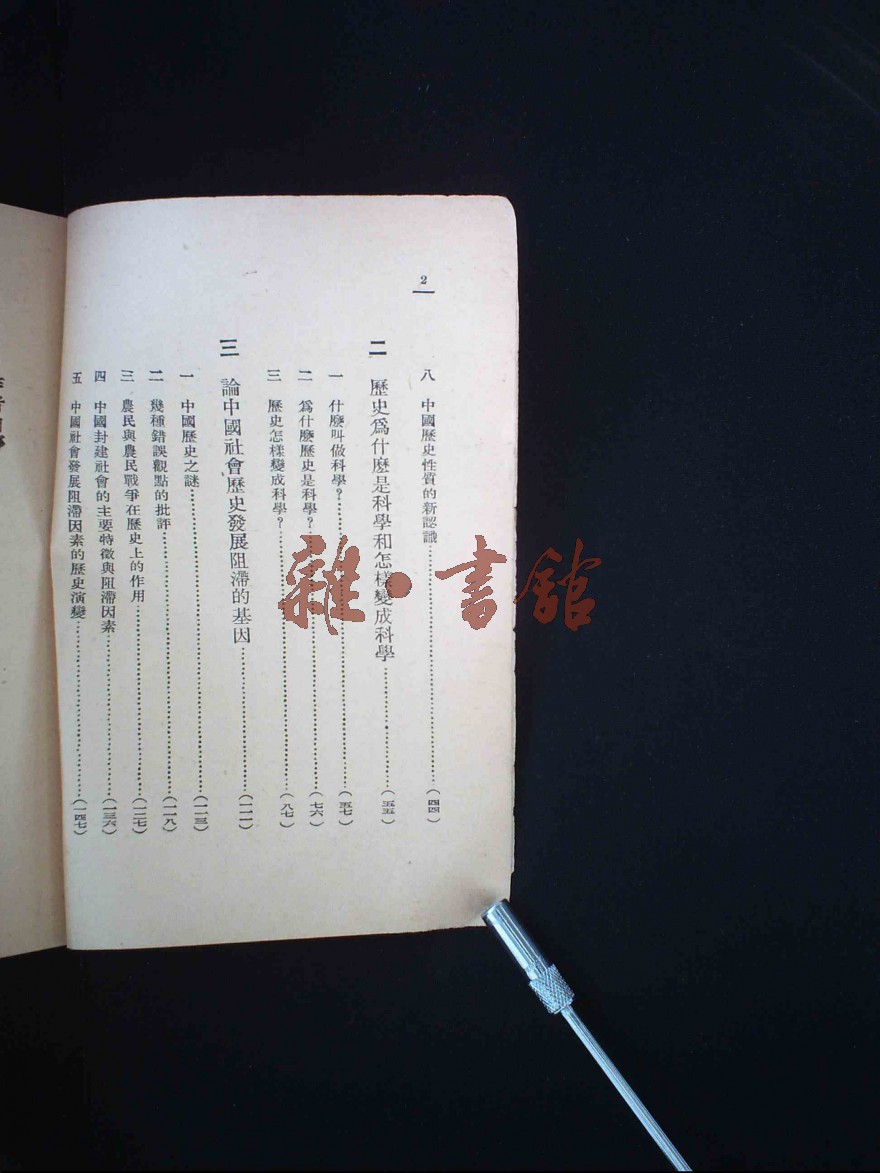 2
八　中國歷史性質的新認識……（四四）
二　歷史爲什麽是科學和怎樣變成科學……（五五）
一　什麽叫做科學？……（五七）
二　爲什麽歷史是科學？……（七六）
三　歷史怎樣變成科學？……（八七）
三　論中國社會歷史發展阻滯的基因……（一一一）
一　中國歷史之謎……（一一三）
二　幾種錯誤觀點的批評……（一一八）
三　農民與農民戰爭在歷史上的作用……（一二七）
四　中國封建社會的主要特徵與阻滯因素……（一三六）
五　中國社會發展阻滯因素的歷史演變……（一四七）
雜·書館